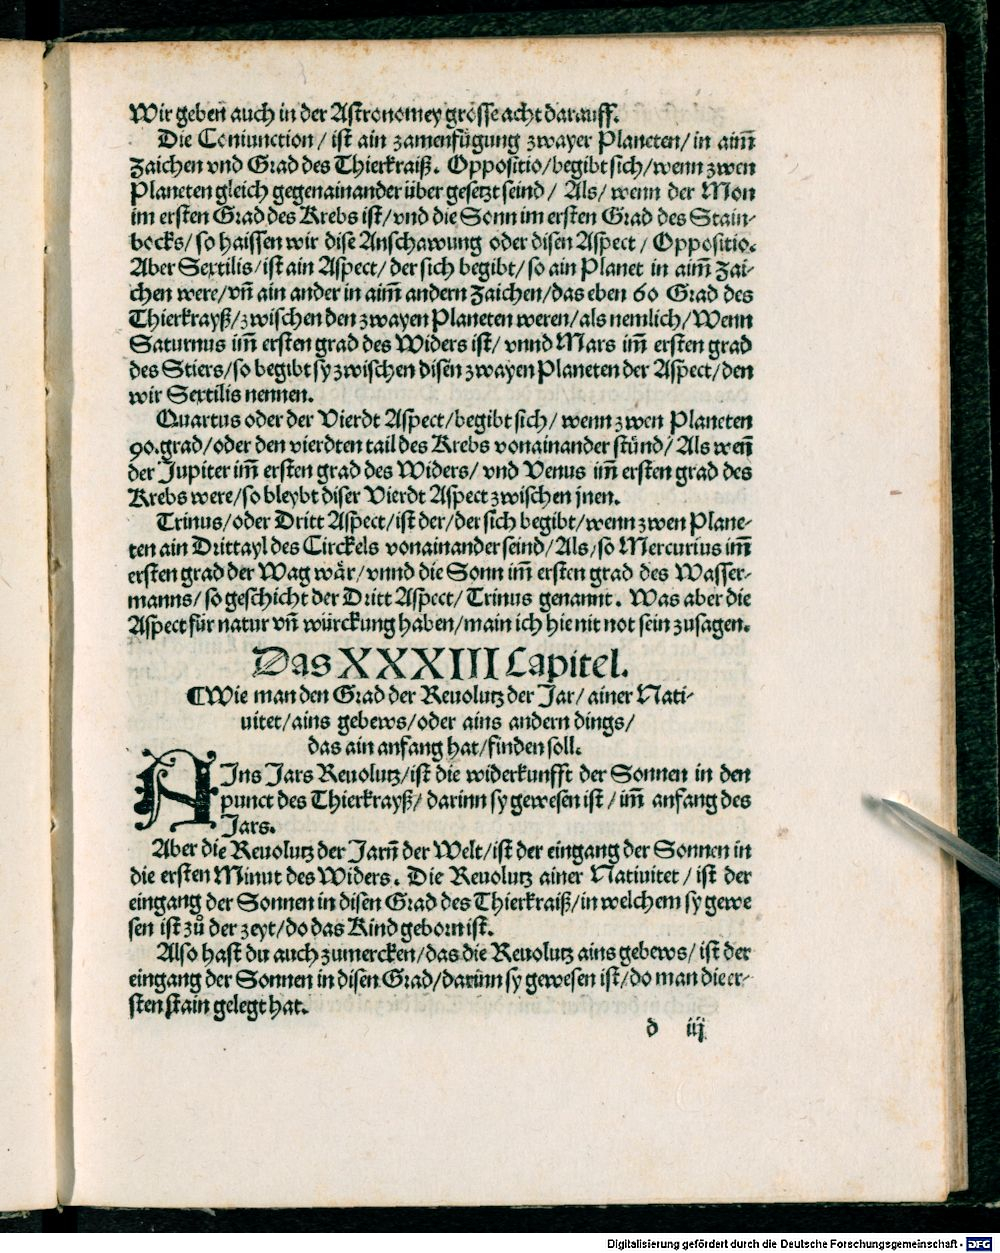 Wir geben auch in der Astronomey grosse acht darauff.
Die Coniunction / ist ain zamenfügung zwayer Planeten/ in aim̃
Zaichen vnd Grad des Thierkraiß. Oppositio/begibt sich/wenn zwen
Planeten gleich gegenainander über gesetzt seind/ Als/ wenn der Mon
im ersten Grad des Krebs ist/vnd die Sonn im ersten Grad des Stain-
bocks/so haissen wir dise Anschawung oder disen Aspect/ Oppositio.
Aber Sextilis/ist ain Aspect/der sich begibt/so ain Planet in aim̃ Zai-
chen were/vñ ain ander in aim̃ andern Zaichen/das eben 60 Grad des
Thierkrayß/zwischen den zwayen Planeten weren/als nemlich/Wenn
Saturnus im̃ ersten grad des Widers ist/ vnnd Mars im̃ ersten grad
des Stiers/so begibt sy zwischen disen zwayen Planeten der Aspect/den
wir Sextilis nennen.
Quartus oder der Vierdt Aspect/begibt sich/ wenn zwen Planeten
90.grad/oder den vierdten tail des Krebs vonainander stünd/Als weñ
der Jupiter im̃ ersten grad des Widers/ vnd Venus im̃ ersten grad des
Krebs were/so bleybt diser Vierdt Aspect zwischen jnen.
Trinus/oder Dritt Aspect/ist der/der sich begibt/wenn zwen Plane-
ten ain Drittayl des Circkels vonainander seind/Als/so Mercurius im̃
ersten grad der Wag wär/vnnd die Sonn im̃ ersten grad des Wasser-
manns/so geschicht der Dritt Aspect/ Trinus genannt. Was aber die
Aspect für natur vñ würckung haben/main ich hie nit not sein zusagen.
Das XXXIII Capitel.
❡Wie man den Grad der Reuolutz der Jar/ ainer Nati-
uitet/ains gebews/oder ains andern dings/
das ain anfang hat/finden soll.
AIns Jars Reuolutz/ist die widerkunfft der Sonnen in den
punct des Thierkrayß/ darinn sy gewesen ist/ im̃ anfang des
Jars.
Aber die Reuolutz der Jarñ der Welt/ist der eingang der Sonnen in
die ersten Minut des Widers. Die Reuolutz ainer Natiuitet/ ist der
eingang der Sonnen in disen Grad des Thierkraiß/in welchem sy gewe
sen ist zů der zeyt/do das Kind geborn ist.
Also hast du auch zumercken/das die Reuolutz ains gebews/ ist der
eingang der Sonnen in disen Grad/darinn sy gewesen ist/do man die er-
sten stain gelegt hat.
d iij
Digitalisierung gefördert durch die Deutsche Forschungsgemeinschaft - DFG